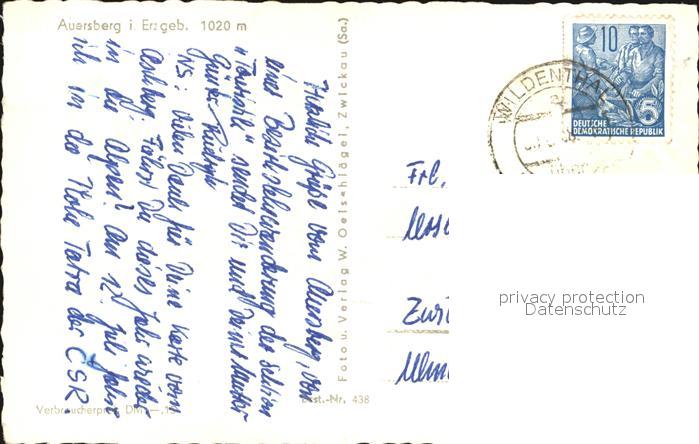 Auersberg i. Erzgeb. 1020 m
Herzliche Grüße vom Auersberg, von
einer Bezirkssternwanderung der Sektion
"Touristik" sendet Dir und Deiner Mutter
Günter
NS: Vielen Dank für Deine Karte vom
Fährst Du dieses Jahr wieder
in die Alpen? Am 12. Juli fahre
ich in die Hohe Tatra der ČSR
Foto u. Verlag W. Oelschlägel, Zwickau (Sa.)
Verbraucherpreis DM —.15
Best.-Nr. 438
10
5
DEUTSCHE
DEMOKRATISCHE REPUBLIK
WILDENTHAL
über
Frl.
privacy protection
Datenschutz